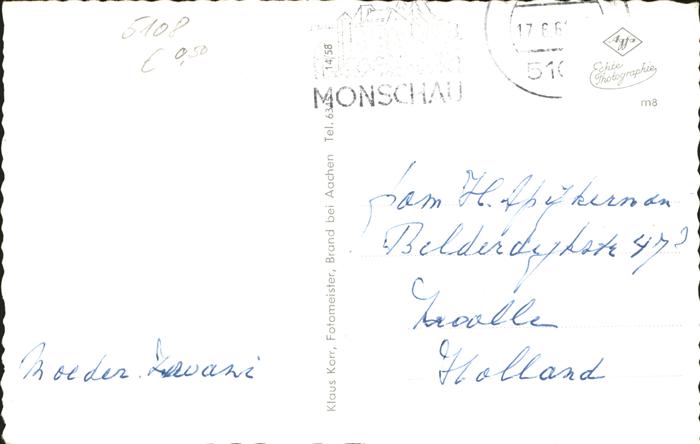 5108
€ 0,50
MONSCHAU
14/58
17.6.6
510
Echte
Photographie
m8
Klaus Korr, Fotomeister, Brand bei Aachen Tel. 63
Fam H. Spijkerman
Bilderdijkstr 47
Zwolle
Holland
Moeder